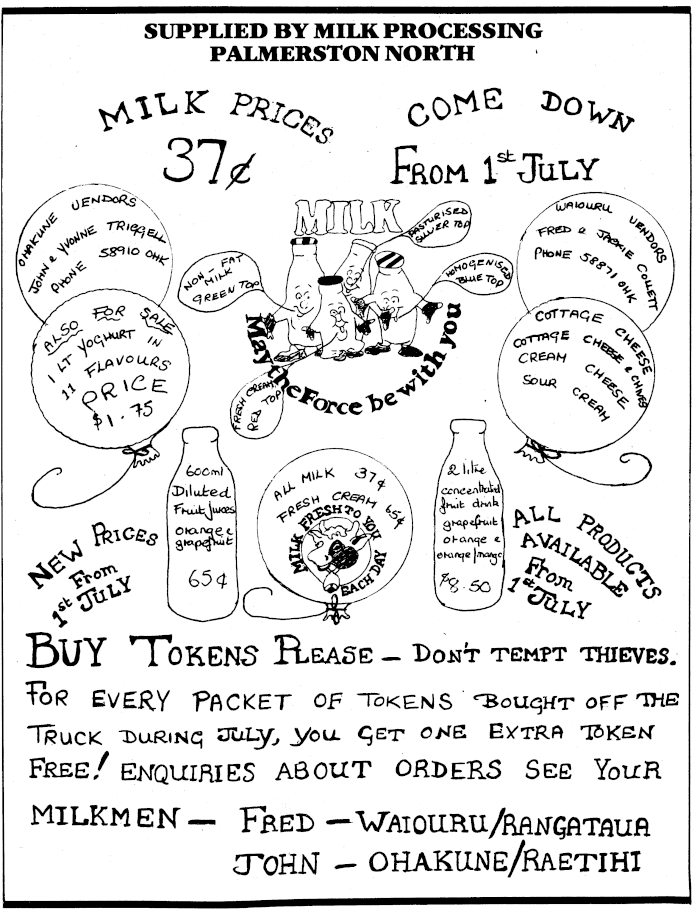 SUPPLIED BY MILK PROCESSING
PALMERSTON NORTH
MILK PRICES
37¢
COME DOWN
FROM 1st JULY
OHAKUNE VENDORS
JOHN & YVONNE TRIGGELL
PHONE 58910 OHK
ALSO FOR SALE
1 LT YOGHURT IN
11 FLAVOURS
PRICE
$1.75
MILK
PASTURISED
SILVER TOP
NON FAT
MILK
GREEN TOP
HOMOGENISED
BLUE TOP
FRESH CREAM
RED TOP
May the Force be with you
WAIOURU VENDORS
FRED & JACKIE COLLETT
PHONE 58871 OHK
COTTAGE CHEESE
COTTAGE CHEESE & CHIVES
CREAM CHEESE
SOUR CREAM
NEW PRICES
From
1st JULY
600ml
Diluted
Fruit Juices
orange &
grapefruit
65¢
ALL MILK 37¢
FRESH CREAM 65¢
MILK FRESH TO YOU
EACH DAY
2 litre
concentrated
fruit drink
grapefruit
orange &
orange/mango
$8.50
ALL PRODUCTS
AVAILABLE
From
1st JULY
BUY TOKENS PLEASE - DON'T TEMPT THIEVES.
FOR EVERY PACKET OF TOKENS BOUGHT OFF THE
TRUCK DURING JULY, YOU GET ONE EXTRA TOKEN
FREE! ENQUIRIES ABOUT ORDERS SEE YOUR
MILKMEN - FRED - WAIOURU/RANGATAUA
JOHN - OHAKUNE/RAETIHI